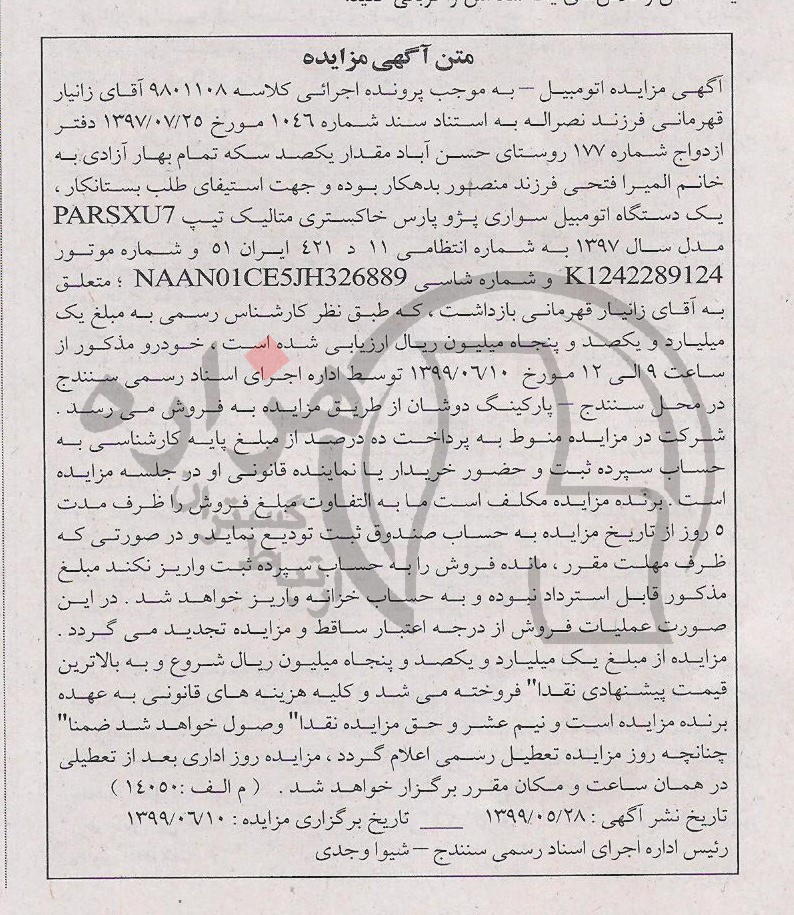 متن آگهی مزایده
آگهی مزایده اتومبیل – به موجب پرونده اجرائی کلاسه ۹۸۰۱۱۰۸ آقای زانیار
قهرمانی فرزند نصراله به استناد سند شماره ۱۰۴۶ مورخ ۱۳۹۷/۰۷/۲۵ دفتر
ازدواج شماره ۱۷۷ روستای حسن آباد مقدار یکصد سکه تمام بهار آزادی به
خانم المیرا فتحی فرزند منصور بدهکار بوده و جهت استیفای طلب بستانکار ،
یک دستگاه اتومبیل سواری پژو پارس خاکستری متالیک تیپ PARSXU7
مدل سال ۱۳۹۷ به شماره انتظامی ۱۱ د ۴۲۱ ایران ۵۱ و شماره موتور
K1242289124 و شماره شاسی NAAN01CE5JH326889 ؛ متعلق
به آقای زانیار قهرمانی بازداشت ، که طبق نظر کارشناس رسمی به مبلغ یک
میلیارد و یکصد و پنجاه میلیون ریال ارزیابی شده است ، خودرو مذکور از
ساعت ۹ الی ۱۲ مورخ ۱۳۹۹/۰۶/۱۰ توسط اداره اجرای اسناد رسمی سنندج
در محل سنندج – پارکینگ دوشان از طریق مزایده به فروش می رسد .
شرکت در مزایده منوط به پرداخت ده درصد از مبلغ پایه کارشناسی به
حساب سپرده ثبت و حضور خریدار یا نماینده قانونی او در جلسه مزایده
است . برنده مزایده مکلف است ما به التفاوت مبلغ فروش را ظرف مدت
۵ روز از تاریخ مزایده به حساب صندوق ثبت تودیع نماید و در صورتی که
ظرف مهلت مقرر ، مانده فروش را به حساب سپرده ثبت واریز نکند مبلغ
مذکور قابل استرداد نبوده و به حساب خزانه واریز خواهد شد . در این
صورت عملیات فروش از درجه اعتبار ساقط و مزایده تجدید می گردد .
مزایده از مبلغ یک میلیارد و یکصد و پنجاه میلیون ریال شروع و به بالاترین
قیمت پیشنهادی نقدا" فروخته می شد و کلیه هزینه های قانونی به عهده
برنده مزایده است و نیم عشر و حق مزایده نقدا" وصول خواهد شد ضمنا"
چنانچه روز مزایده تعطیل رسمی اعلام گردد ، مزایده روز اداری بعد از تعطیلی
در همان ساعت و مکان مقرر برگزار خواهد شد . ( م الف :۱۴۰۵۰ )
تاریخ نشر آگهی : ۱۳۹۹/۰۵/۲۸ ___ تاریخ برگزاری مزایده : ۱۳۹۹/۰۶/۱۰
رئیس اداره اجرای اسناد رسمی سنندج – شیوا وجدی
هزاره